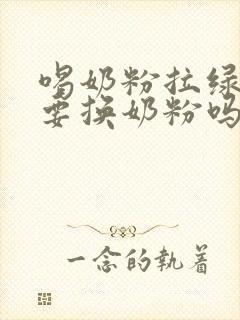 喝奶粉拉绿
要换奶粉吗
一念的执着